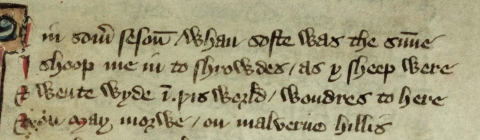 In somer seson whan softe was the sonne
I shoop me in to shrowdes / as y sheep were
& wente wyde in þis world / wondres to here
on a may morwe / on malverne hillis